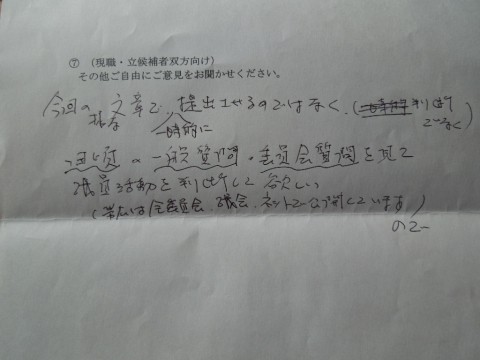 ⑦ (現職・立候補者双方向け)
その他ご自由にご意見をお聞かせください。
今回の様な文章で、一時的に提出させるのではなく、(判断ではなく)
日頃の一般質問・委員会質問を見て
議員活動を判断して欲しい
(は全委員会、議会、ネットで公開しています)
ので